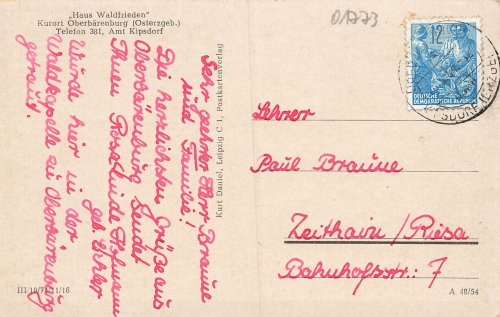 „Haus Waldfrieden"
Kurort Oberbärenburg (Osterzgeb.)
Telefon 381, Amt Kipsdorf
Sehr geehrter Herr Braune
und Familie!
Die herzlichsten Grüße aus
Oberbärenburg sendet
Ihnen Roselinde Hofmann
geb. Eichler
Wurde hier in der
Waldkapelle zu Oberbärenburg
getraut.
III/18/74 11/16
Kurt Daniel, Leipzig C 1, Postkartenverlag
01773
12.
DEUTSCHE
DEMOKRATISCHE REPUBLIK
Lehrer
Paul Braune
Zeithain/Riesa
Bahnhofsstr. 7
A 48/54